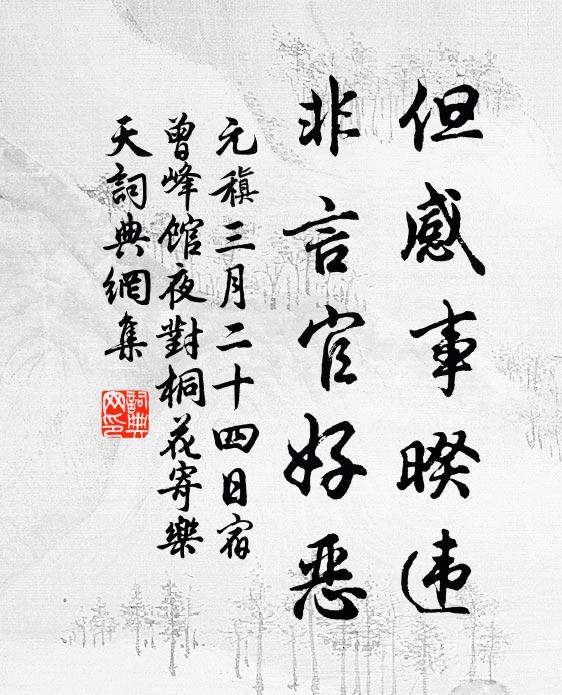 但感事暌违
非言官好恶
元稹三月二十四日宿
曾峰馆夜對桐花寄樂
天詞典網集
詞典
网印